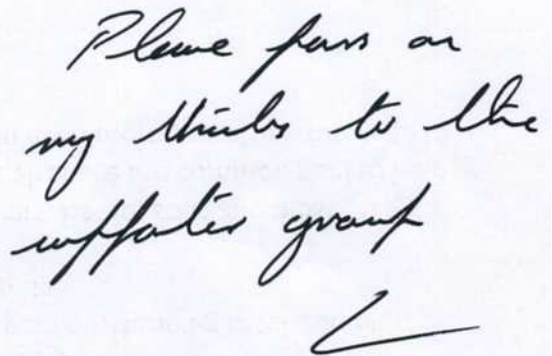 Please pass on
my thanks to the
supporter group